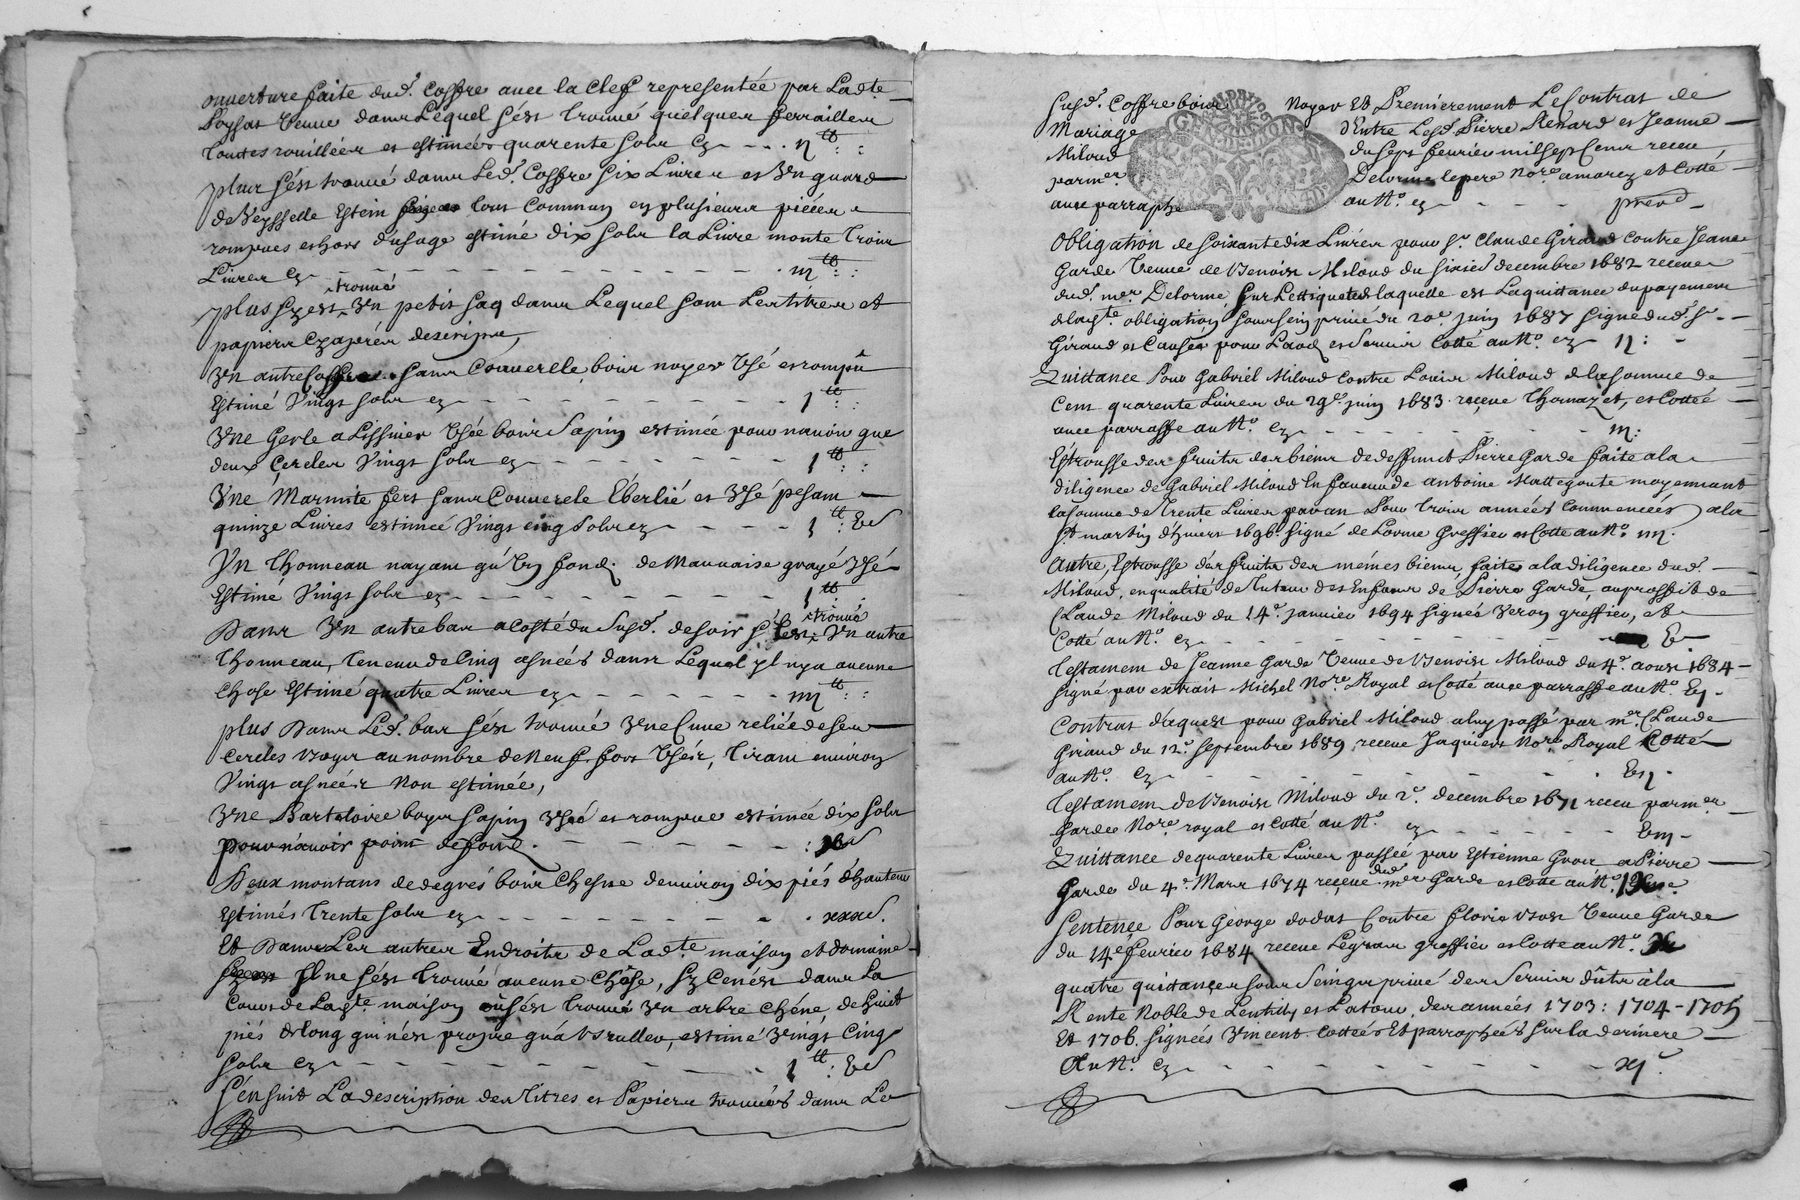 ouverture faite dud. Coffre avec la Clef representée par Ladte
veuve dans Lequel s'est trouvé quelques ferrailles
toutes rouillées et estimées quarente sols cy - - - ij tt : :
plus s'est trouvé dans Led. Coffre six Livres et Un quard
de Veysselle Estein tout Commun en plusieurs pièces
rompues et hors d'usage estimé dix sols la Livre monte trois
Livres cy - - - iij tt : :
plus s'y est trouvé Un petit saq dans Lequel sont Les titres et
papiers cy après descripts
Un autre Coffre sans Couvercle bois noyer Usé et rompû
Estimé Vingt sols cy - - - j tt : :
Une Gerle a Lissiver Usée bois Sapin estimée pour n'avoir que
deux Cercles Vingt sols cy - - - j tt : :
Une Marmite fert sans Couvercle Eberlié et Usé pesant
quinze Livres estimée Vingt cinq sols cy - - - j tt : Vs
Un thonneau nayant qu'Un fond. de Mauvaise grayé Usé
Estimé Vingt sols cy - - - j tt :
Dans Un autre bas a Costé du Susd. de soir s'est trouvé Un autre
thonneau, tenent de Cinq asnées dans Lequel yl n'y a aucune
chose Estimé quatre Livres cy - - - iiij tt : :
plus Dans Led. bas s'est trouvé Une Cuve reliée de sen
Cercles boys au nombre de Neuf fort Usés, tirant environ
Vingt asnées Non estimée,
Une Barteloire boys sapin Usé et rompue estimée dix sols
pour n'avoir point de fond. - - - : xs
Deux montans de degrés bois Chesne d'environ dix piés d'hauteur
Estimés trente sols cy - - - xxxs.
Et Dans Les autres Endroits de Ladte maison et domaine
Il ne s'est trouvé aucune chôse, sy Cenest dans La
Cour de Ladte maison où s'est trouvé Un arbre chéne, de huit
piés de long qui n'est propre qu'à brusler, estimé Vingt Cinq
sols cy - - - j tt : Vs
S'ensuit La description des Titres et Papiers trouvés dans Le
Susd. Coffre bois Noyer Et Premierement Le Contrat de
Mariage d'Entre Lesd. Pierre Renard et Jeanne
Miloud du sept fevrier mil sept Cent receu
par mer Delorme le pere Nore a marcy et Cotté
avec parraphe au No. cy - - - prer
Obligation de soixante dix Livres pour Sr. Claude Giraud Contre Jeanne
Garde Veuve de Benoist Miloud du sixie decembre 1682 receue
dud. mer Delorme, sur Lettiquete de laquelle est La quittance du payement
de lad.te obligation sous sein privé du 20e juin 1687 signé dud. Sr.
Giraud et Causes pour Laod et Servir Cotté au No. cy - ij : -
Quittance Pour Gabriel Miloud Contre Louis Miloud de la somme de
Cent quarente Livres du 29e juin 1683 reçue Thomazet, et Cottée
avec parraffe au No. cy - - - iij :
Estrousse des fruits des biens de deffunct Pierre Garde faite a la
diligence de Gabriel Miloud En faveur de antoine Mattegoute moyennant
la somme de Trente Livres par an Pour trois années Commencées, a la
St. martin d'hiver 1696. Signé de Lorme Greffier et Cotté au No. iiij.
Autre, Estrousse des fruits des mémes biens, faite a la diligence dud.
Miloud, en qualité de tuteur des Enfans de Pierre Garde, au proffit de
Claude Miloud du 14e. janvier 1694 signés Veron greffier, et
Cotté au No. cy - - - V
Testament de Jeanne Garde Veuve de Benoist Miloud du 4e. aoust 1684
signé par extrait Michel Nore Royal et Cotté avec parraffe au No. Vj -
Contrat d'aquest pour Gabriel Miloud a luy passé par mer. Claude
Giraud du 12e. Septembre 1689, receue Jaquiers Nore. Royal Cotté
au No. cy - - - Vij -
Testament de Benoist Miloud du 2e. decembre 1671 receu par mer
Garde Nore. royal et Cotté au No. cy - - - Viij -
Quittance de quarente Livres passée par Estienne Grout a Pierre
Garde du 4e. Mars 1674 reçeue dud. mer Garde et Cotté au No.
Sentence Pour George dodat Contre floris Veuve Garde
du 14e fevrier 1684 receue Legrat greffier et Cotté au No. X
quatre quittances sous Seings privé des Servis dûtes à la
Rente Noble de Lentilly et Latour, des années 1703 : 1704 - 1705
Et 1706. Signées Vincent. Cottées Et parraphées sur la derniere
Au No. cy - - - xj.